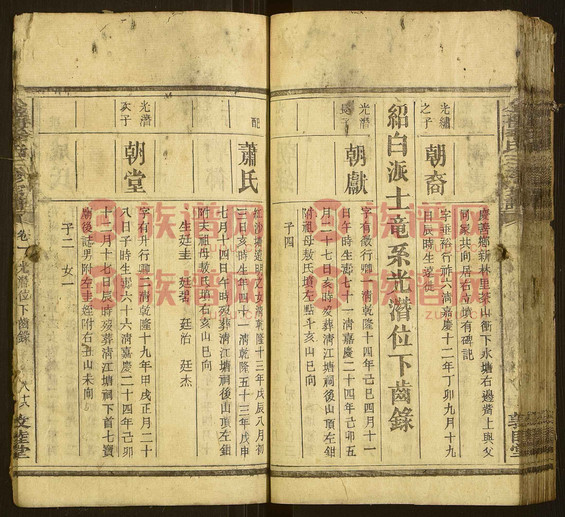 慶善鄉新林里茶山衝下永塘右邊嘴上與父
同家共向居右立墳有碑記
光繡
之子
朝裔
字垂裕行 六清嘉慶十二年丁卯九月十九
日辰時生
紹白派士竜系光潛位下齒錄
光潛
朝獻
字有徵行 清乾隆十四年己巳四月十一
日午時生 七十一清嘉慶二十四年己卯五
月二十七日亥時歿葬清江塘祠後山頂左鉗
附祖母敖氏墳左點斗亥山巳向
子四
配
蕭氏
清乾隆十三年戊辰八月初
三日亥時生年四十一清乾隆五十三年戊申
七月十四日午時歿葬清江塘祠後山頂左鉗
附夫祖母敖氏墳右亥山巳向
生廷圭 廷碧 廷治 廷杰
光潛
次子
朝堂
字有升行 二清乾隆十九年甲戌正月二十
八日子時生 六十六清嘉慶二十四年己卯
十二月十七日辰時歿葬清江塘祠下首七寶
廟後誌男附左圭姪附右丑山未向
子二 女一
卷 光潛位下齒錄
敦睦堂